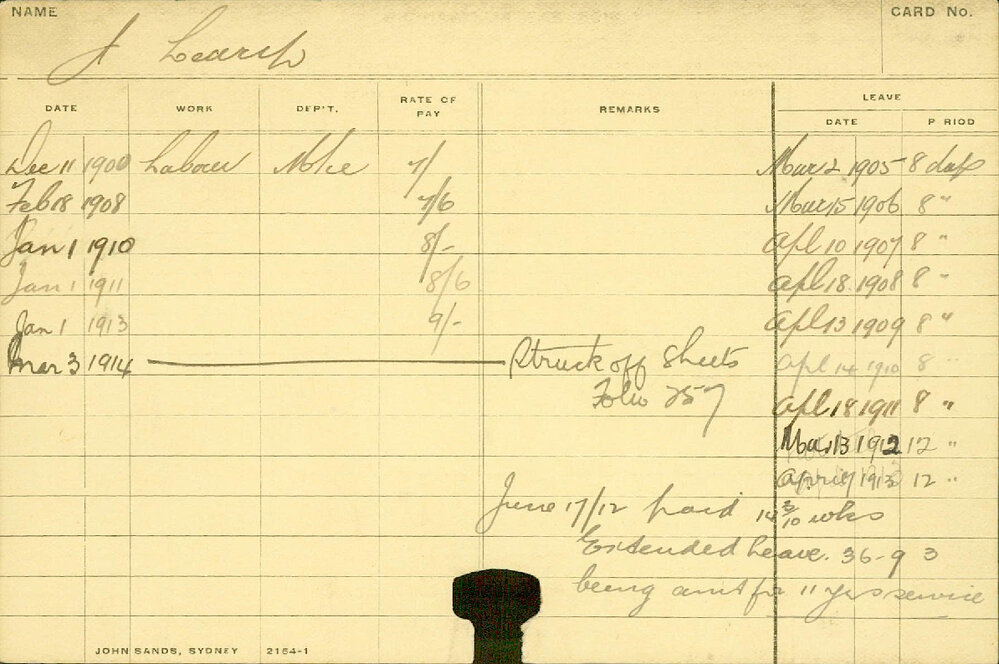 NAME CARD No.
J Learsh
DATE WORK DEP'T. RATE OF PAY REMARKS LEAVE
DATE P RIOD
Dec 11 1900 Labour 7/ Mar 2 1905 8 days
Feb 18 1908 7/6 Mar 15 1906 8 "
Jan 1 1910 8/- Apl 10 1907 8 "
Jan 1 1911 8/6 Apl 18 1908 8 "
Jan 1 1913 9/- Apl 13 1909 8 "
Mar 3 1914 Struck off Sheets Apl 14 1910 8
Folio 257 Apl 18 1911 8 "
Mar 13 1912 12 "
1913 12 "
June 17/12 paid 14 3/10 wks
Extended Leave. 36-9 3
being amt for 11 yrs service
JOHN SANDS, SYDNEY 2164-1